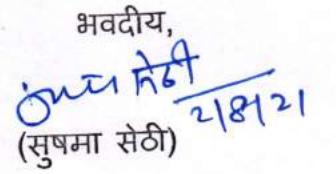 भवदीय,
सेठी
2/8/21
(सुषमा सेठी)